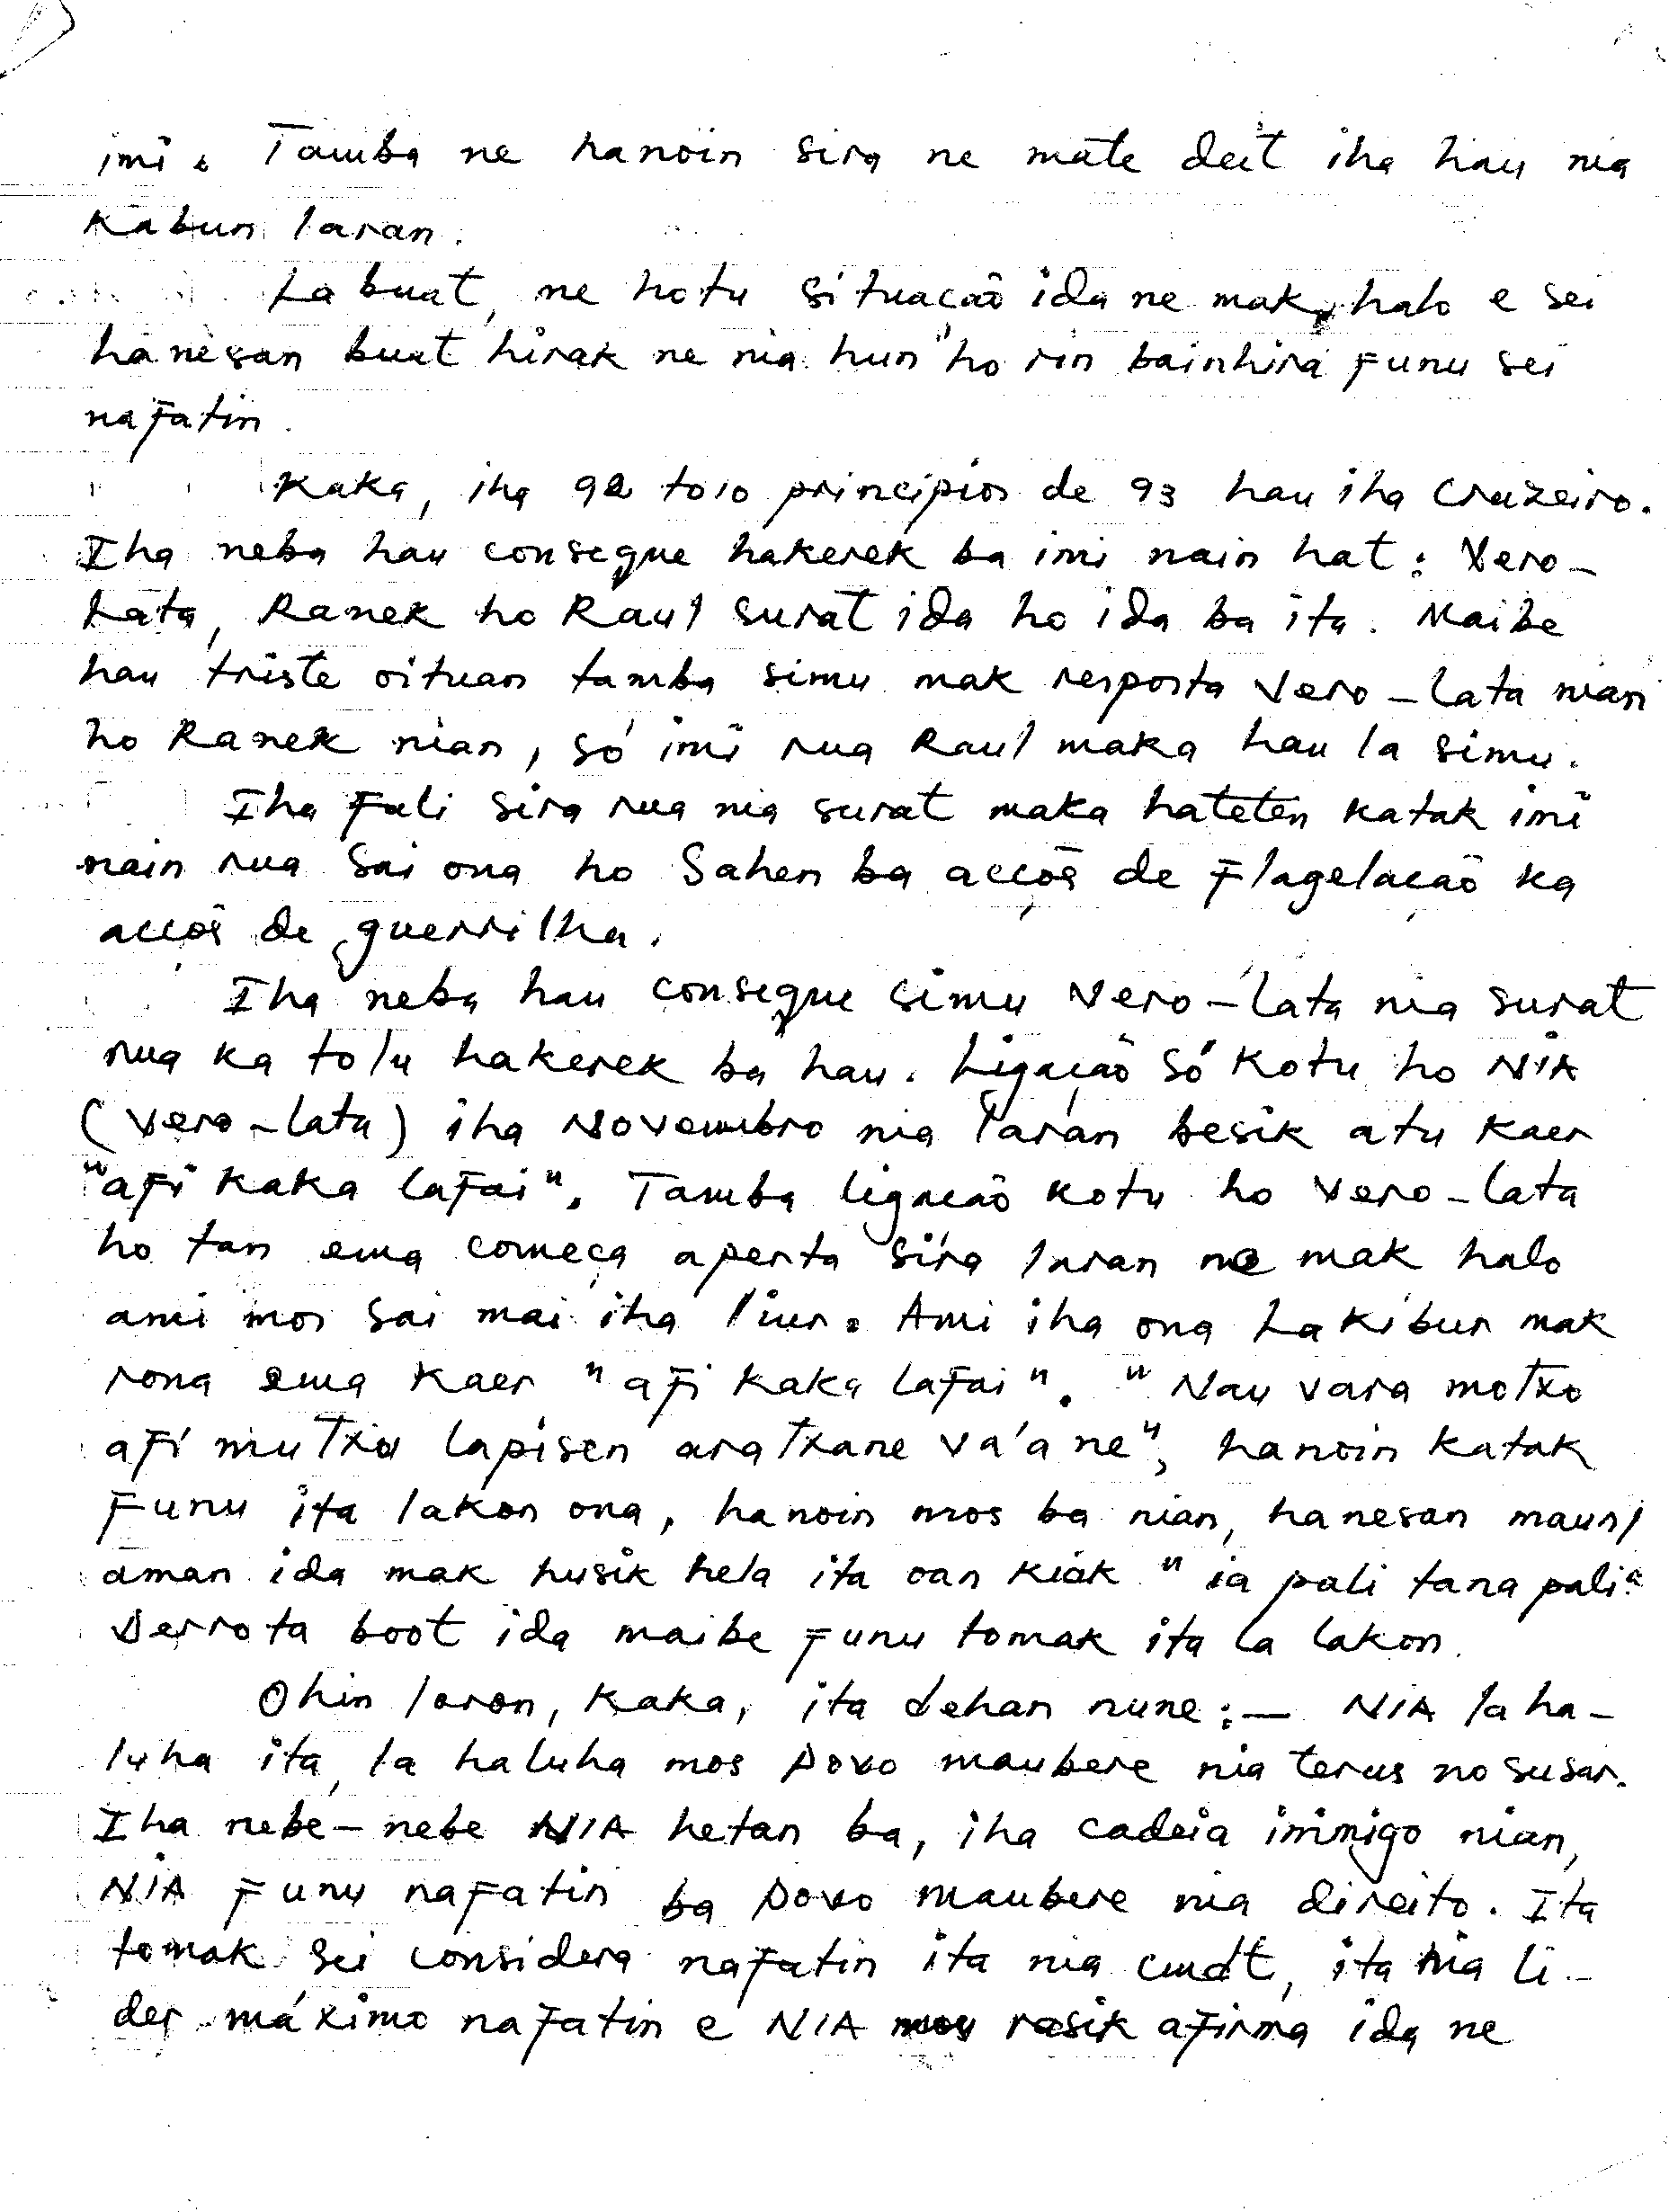 imi. Tamba ne hanoin sira ne mate deit iha hau nia
Kabun laran.
La buat, ne hotu situação ida ne mak halo e sei
hanesan buat hirak ne nia hun ho rin bainhira funu sei
nafatin.
Kaka, iha 92 to'o principios de 93 hau iha Cruzeiro.
Iha neba hau consegue hakerek ba imi nain hat: Vero-
Lata, Ranek ho Raul surat ida ho ida ba ita. Maibe
hau triste oituan tamba simu mak resposta Vero-Lata nian
ho Ranek nian, só imi rua Raul maka hau la simu.
Iha fali sira rua nia surat maka hateten katak imi
nain rua sai ona ho Sahen ba acçõs de flagelação ka
acçõs de guerrilha.
Iha neba hau consegue simu Vero-Lata nia surat
rua ka tolu hakerek ba hau. Ligação só Kotu ho NIA
(Vero-Lata) iha Novembro nia laran besik atu kaer
"afi kaka lafai". Tamba ligação kotu ho Vero-Lata
ho tan ema começa aperta sira laran ne mak halo
ami mos sai mai iha liur. Ami iha ona Lakibur mak
rona ema kaer "afi kaka lafai". "Nau vara motxo
afi mutxu lapisen aratxane va'a ne", hanoin katak
funu ita lakon ona, hanoin mos ba nian, hanesan maun/
aman ida mak husik hela ita oan kiak "ia pali tana pali"
Derrota boot ida maibe funu tomak ita la lakon.
Ohin loron, Kaka, ita dehan nune:— NIA la ha-
luha ita, la haluha mos povo maubere nia terus no susar.
Iha nebe-nebe NIA hetan ba, iha cadeia inimigo nian,
NIA funu nafatin ba povo maubere nia direito. Ita
tomak sei considera nafatin ita nia cmdt, ita nia li-
der máximo nafatin e NIA mos rasik afirma ida ne